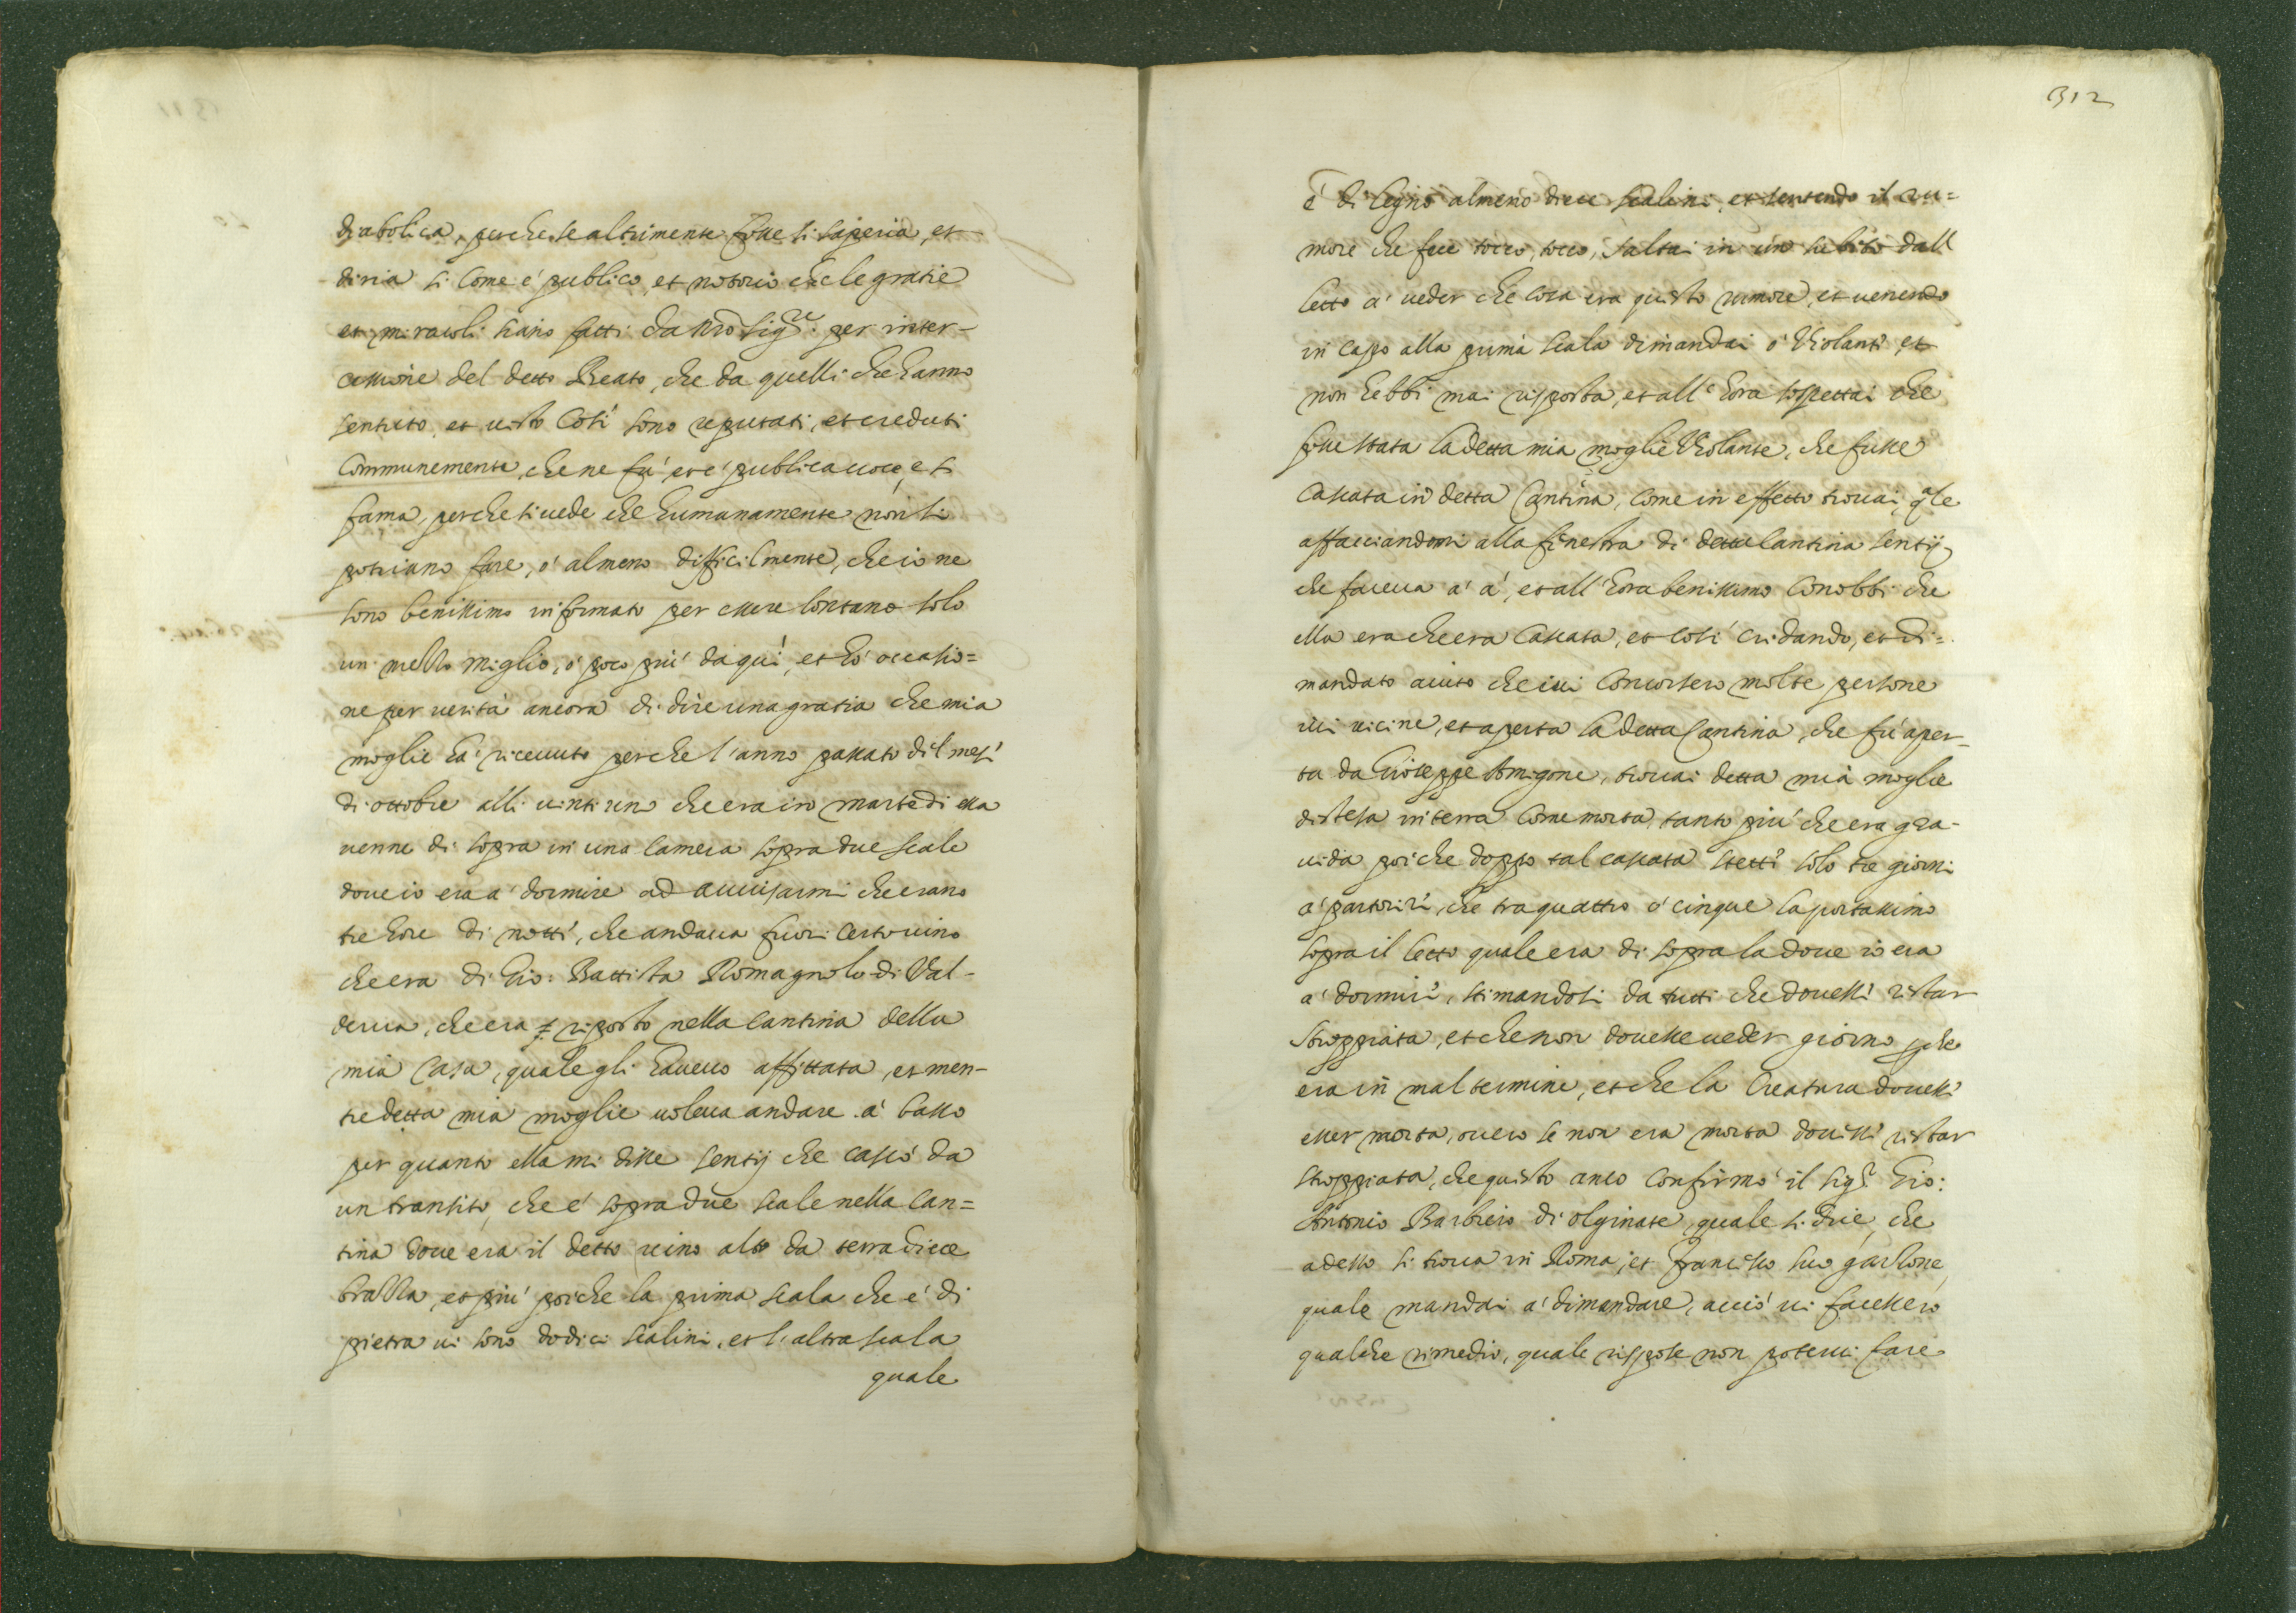 diabolica, perche se altrimente fosse si saperia, et
diria si come é publico, et notorio che le gratie
et miracoli siano fatti da Nro Sigre. per inter-
cessione del detto Beato, che da quelli che hanno
sentuto, et visto cosi sono reputati, et creduti
communemente, che ne fú et é publica uoce, et
fama, perche si uede che humanamente non si
potriano fare, ó almeno difficilmente, che io ne
sono benissimo informato per essere lontano solo
un mezzo miglio, ó poco piú da quí, et hó occasio=
ne per uerita ancora di dire una gratia che mia
moglie há riceuuto perche l'anno passato dil mesi
di ottobre alli uinti uno che era in martedi essa
uenne di sopra in una camera sopra due scale
doue io era á dormire ad auuisarmi che erano
tre hore di notti, che andaua fuori certo uino
che era di Gio: Battista Romagnolo di Val-
derua, che era riposto nella cantina della
mia casa, quale gli haueuo affittata, et men-
tre detta mia moglie uoleua andare á basso
per quanto essa mi disse sentij che cascó da
un transito, che é sopra due scale nella can=
tina doue era il detto uino alto da terra diece
brazza, et piú poiche la prima scala che é di
pietra ui sono dodici scalini, et l'altra scala
quale
312
é di legno almeno diece scalini, et sentendo il ru=
more che fece tocco, tocco, saltai in uno subito dall
letto á ueder che cosa era questo rumore, et uenendo
in capo alla prima scala dimandai ó Violanti, et
non hebbi mai risposta, et all'hora sospettai che
fosse stata la detta mia moglie Violante, che fusse
cascata in detta Cantina, come in effetto trouai, qle
affacciandomi alla finestra di detta Cantina sentij
che faceua á á, et all'hora benissimo conobbi che
essa era che era cascata, et cosi cridando, et di=
mandato aiuto che iui concorsero molte persone
iui uicine, et aperta la detta Cantina, che fú aper-
ta da Gioseppe Amigone, trouai detta mia moglie
distesa in terra come morta, tanto piú che era gra-
uida poiche doppo tal cascata stetti solo tre giorni
á partoriri, che tra quattro ó cinque la portassimo
sopra il letto quale era di sopra la doue io era
á dormiri, stimandosi da tutti che douessi ristar
stroppiata, et che non douesse ueder giorno, pche
era in mal termine, et che la creatura douessi
esser morta, ouero se non era morta douessi ristar
stroppiata, che questo anco confirmó il Sigr Gio:
Antonio Barbiero di Olginate, quale si dice, che
adesso si troua in Roma, et Francesco suo garzone,
quale mandai á dimandare, acció ui facessero
qualche rimedio, quale rispose non poterui fare